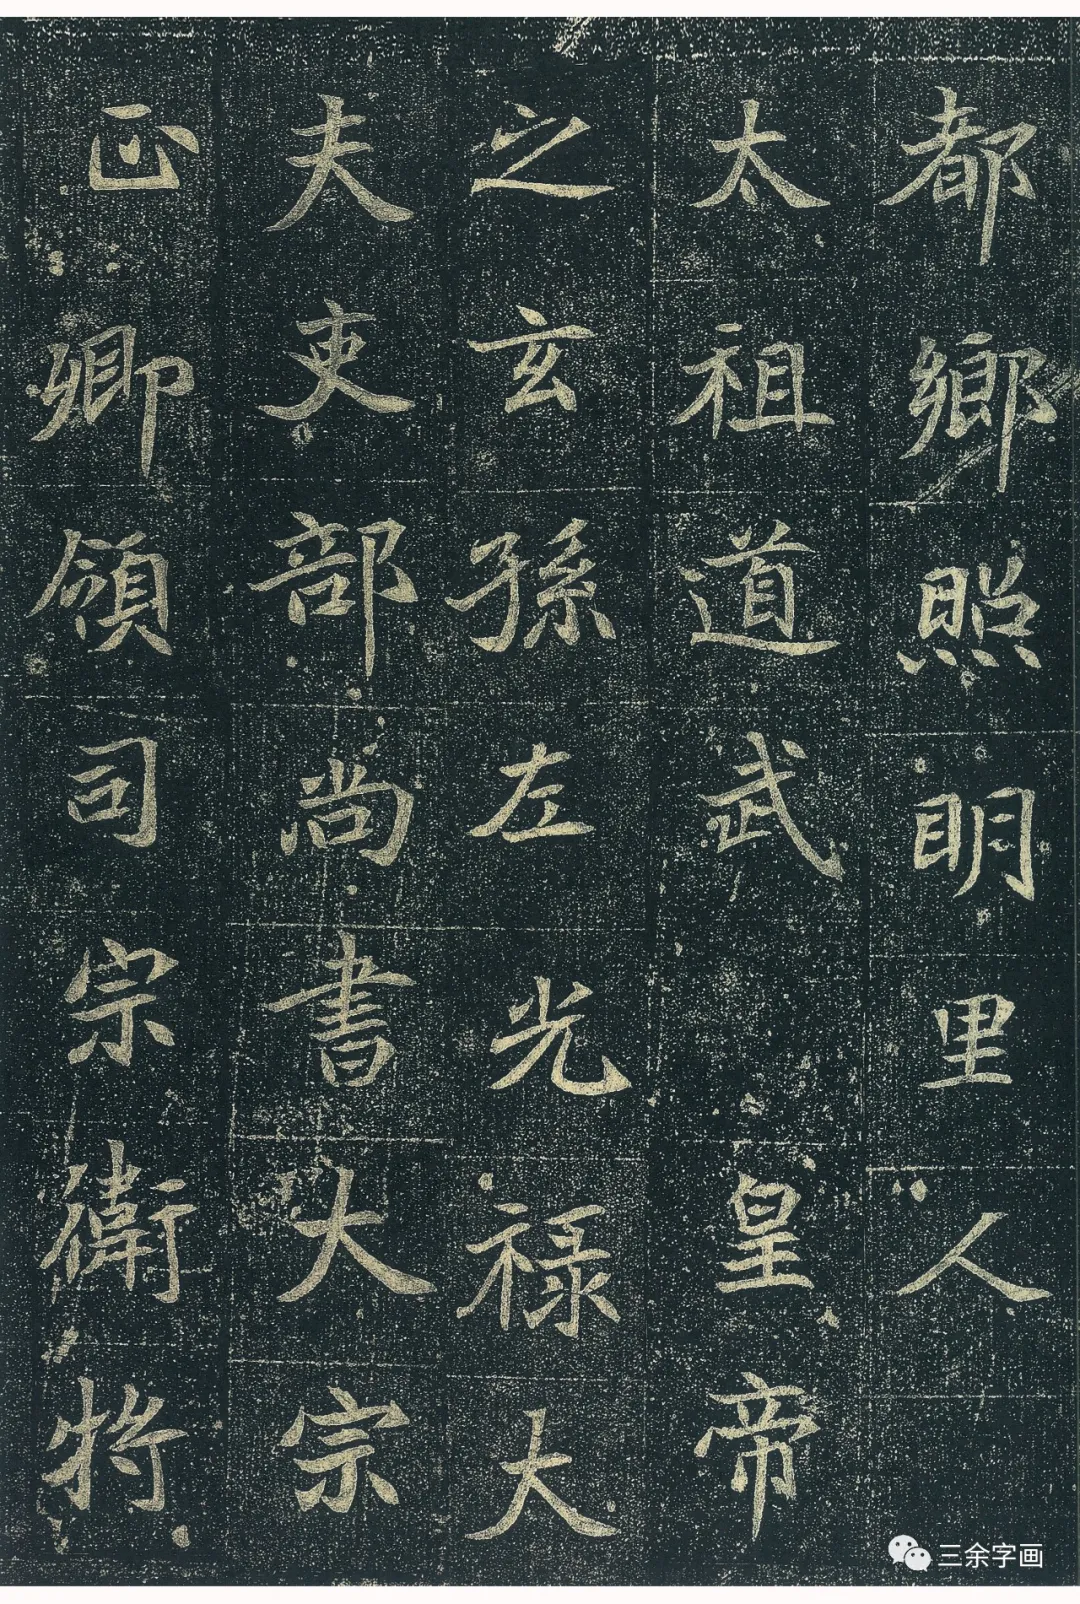 都鄉照明里人
太祖道武 皇帝
之玄孫左光祿大
夫吏部尚書大宗
正卿領司宗衛將
三余字画